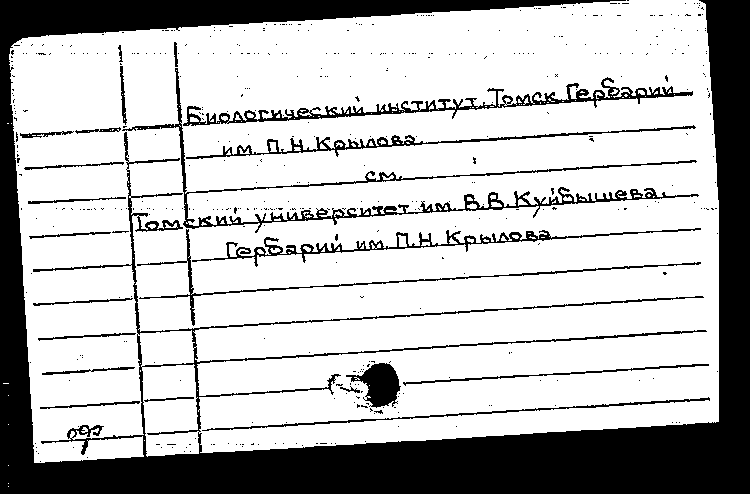 Биологический институт, Томск Гербарий
им. П.Н. Крылова.
см.
Томский университет им. В.В. Куйбышева.
Гербарий им. П.Н. Крылова